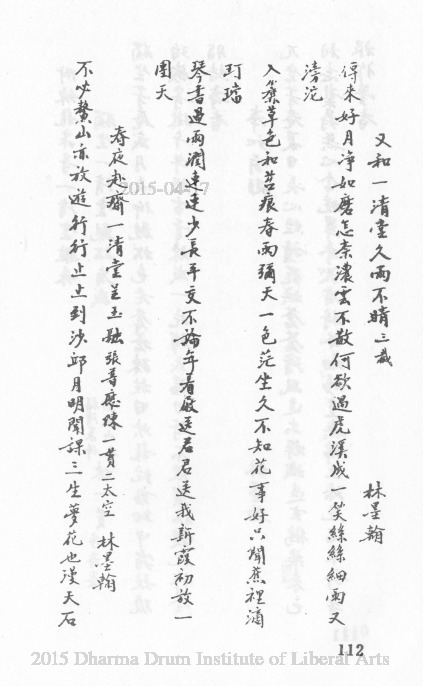 又和一清堂久雨不晴三裁
林星翰
傳來好月淨如磨怎奈濃雲不散何欲過虎溪成一笑絲絲細雨又
滂沱
入簾草色和苔痕春雨彌天一色茫坐久不知花事好只聞蕉裡滴
玎璫
琴書過雨潤速速少長平交不論年看廠送君君送我新霞初放一
團天
春夜赴齋一清堂呈玉融張普應陳一貫二太空 林星翰
不必鰲山亦放遊行行止止到沙邱月明聞課三生夢花也漫天石
112
2015-04-
2015 Dharma Drum Institute of Liberal Arts